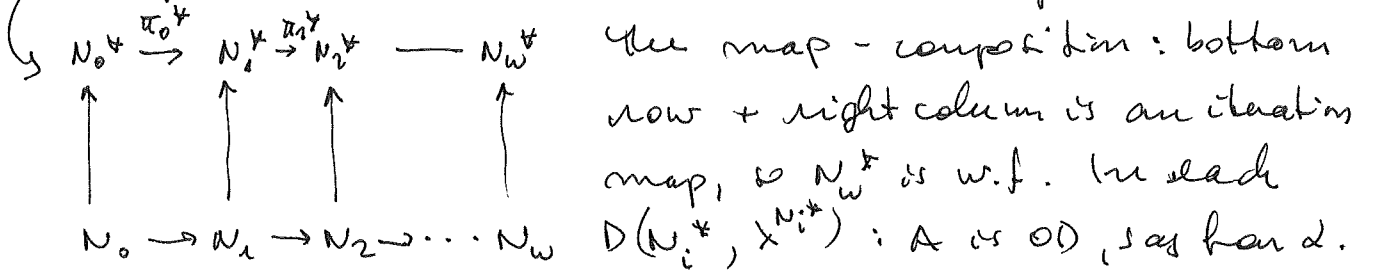 N_0^* π_0^* → N_1^* π_1^* → N_2^* — N_ω^*
The map - composition : bottom
row + right column is an iteration
map, so N_ω^* is w.f. In each
N_0 → N_1 → N_2 → ⋯ N_ω D(N_i^*, λ^{N_i^*}) : A is OD, say from α.